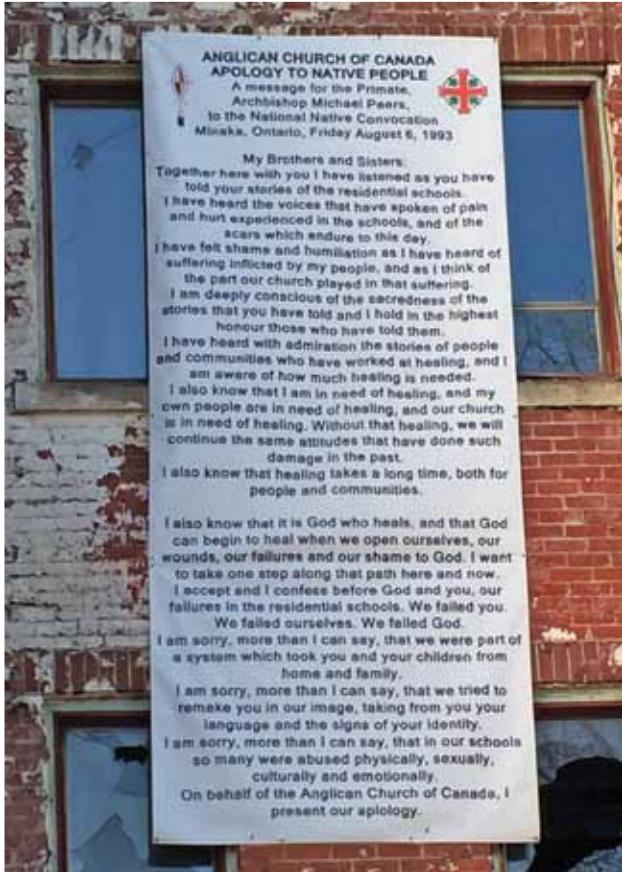 ANGLICAN CHURCH OF CANADA
APOLOGY TO NATIVE PEOPLE
A message for the Primate,
Archbishop Michael Peers,
to the National Native Convocation
Minaka, Ontario, Friday August 6, 1993
My Brothers and Sisters:
Together here with you I have listened as you have
told your stories of the residential schools.
I have heard the voices that have spoken of pain
and hurt experienced in the schools, and of the
scars which endure to this day.
I have felt shame and humiliation as I have heard of
suffering inflicted by my people, and as I think of
the part our church played in that suffering.
I am deeply conscious of the sacredness of the
stories that you have told and I hold in the highest
honour those who have told them.
I have heard with admiration the stories of people
and communities who have worked at healing, and I
am aware of how much healing is needed.
I also know that I am in need of healing, and my
own people are in need of healing, and our church
is in need of healing. Without that healing, we will
continue the same attitudes that have done such
damage in the past.
I also know that healing takes a long time, both for
people and communities.
I also know that it is God who heals, and that God
can begin to heal when we open ourselves, our
wounds, our failures and our shame to God. I want
to take one step along that path here and now.
I accept and I confess before God and you, our
failures in the residential schools. We failed you.
We failed ourselves. We failed God.
I am sorry, more than I can say, that we were part of
a system which took you and your children from
home and family.
I am sorry, more than I can say, that we tried to
remake you in our image, taking from you your
language and the signs of your identity.
I am sorry, more than I can say, that in our schools
so many were abused physically, sexually,
culturally and emotionally.
On behalf of the Anglican Church of Canada, I
present our aplology.